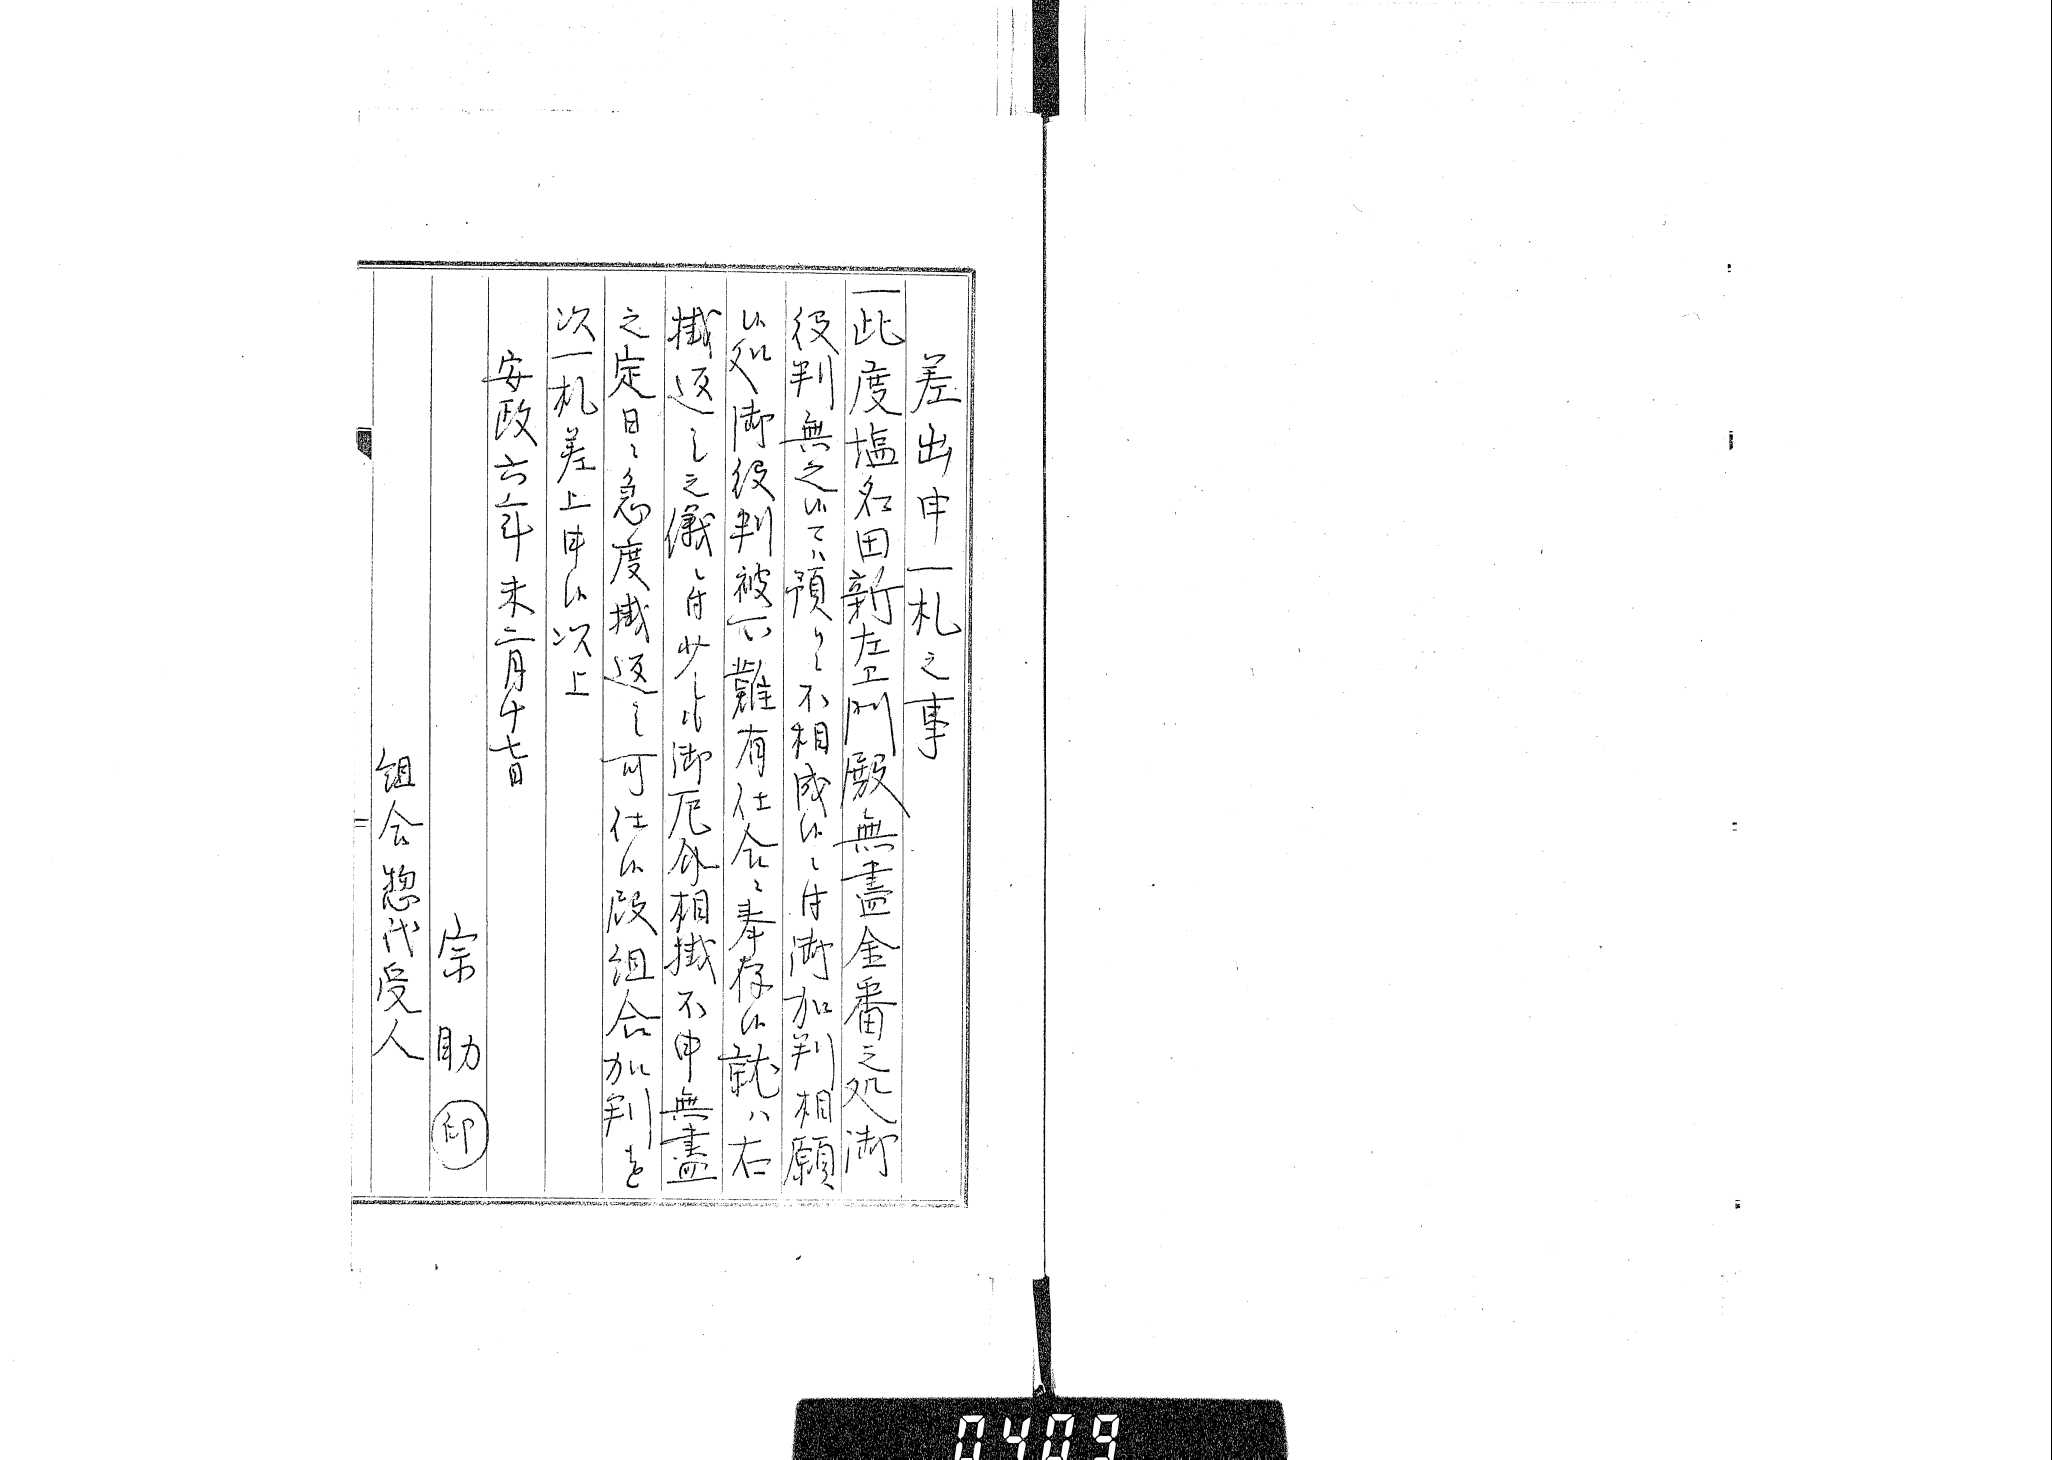 差出申一札之事
一此度塩名田新左衛門殿無盡金番之処御
役判無之候てハ預りニ不相成候ニ付御加判相願
候処御役判被下難有仕合ニ奉存候就ハ右
掛返し之儀ニ付少しも御厄介相掛不申無盡
之定日ニ急度掛返し可仕候段組合加判を
次一札差上申候次上
安政六年未二月十七日
宗助 印
組合惣代受人
0409